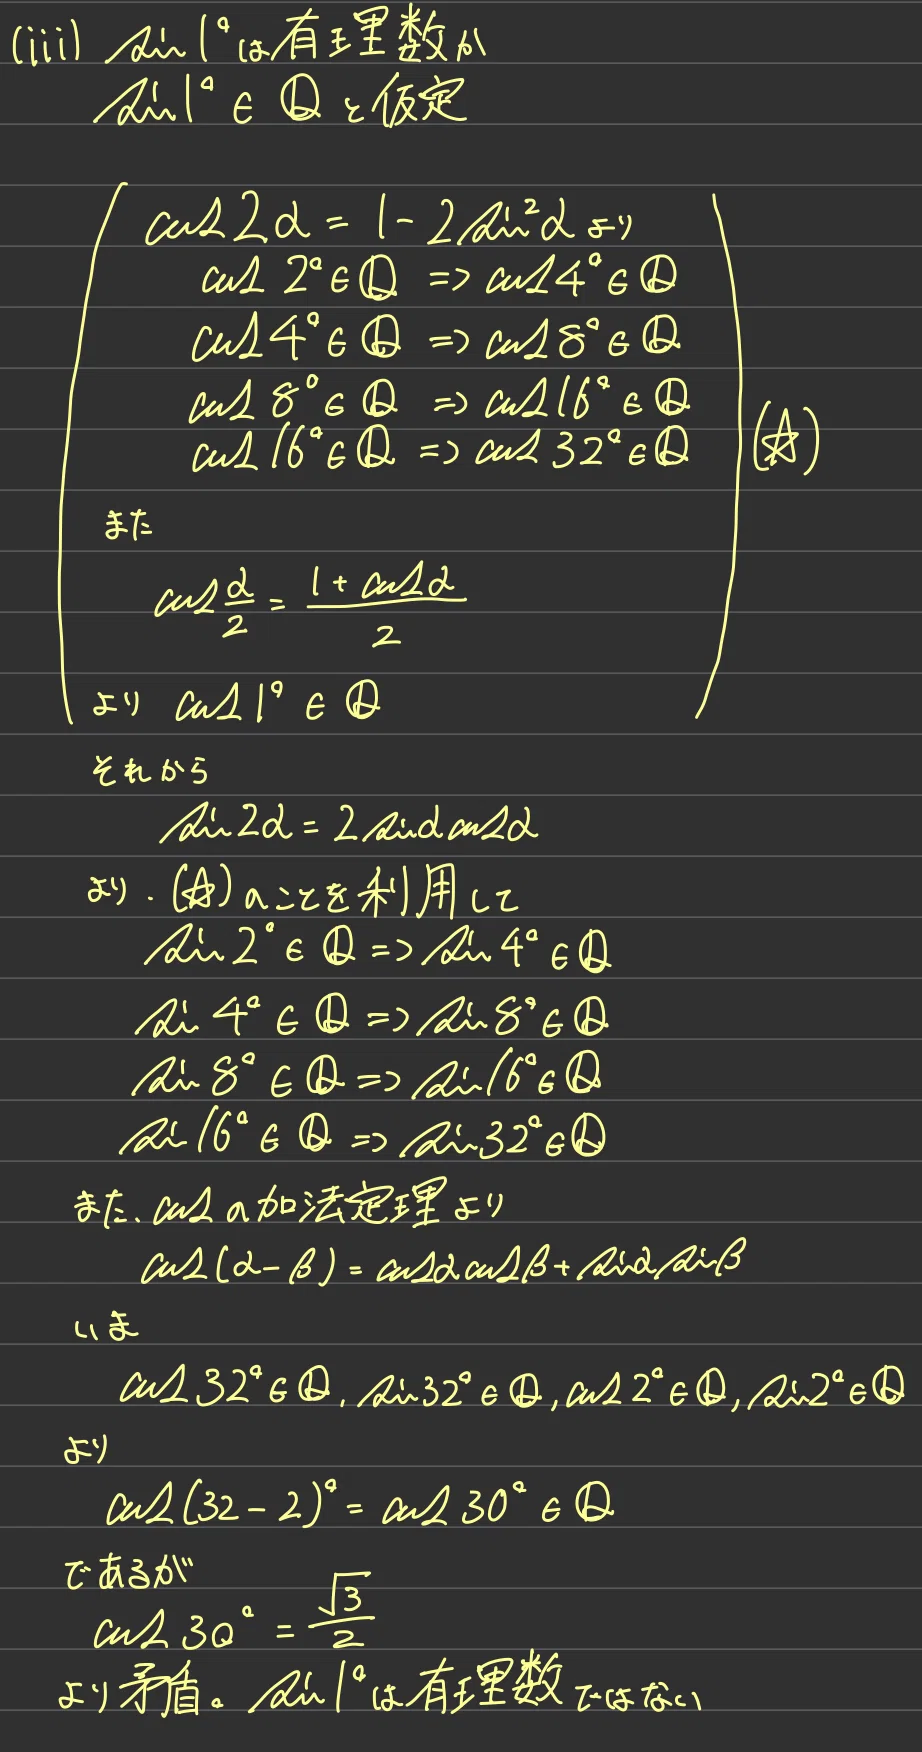 (iii) sin1°は有理数か
sin1° ∈ ℚ と仮定
cos2α = 1 - 2sin²α より
cos 2° ∈ ℚ => cos4° ∈ ℚ
cos4° ∈ ℚ => cos8° ∈ ℚ
cos 8° ∈ ℚ => cos16° ∈ ℚ
cos16° ∈ ℚ => cos 32° ∈ ℚ
(☆)
また
cos α/2 = (1 + cosα)/2
より cos1° ∈ ℚ
それから
sin2α = 2sinαcosα
より.(☆)のことを利用して
sin2° ∈ ℚ => sin4° ∈ ℚ
sin4° ∈ ℚ => sin8° ∈ ℚ
sin8° ∈ ℚ => sin16° ∈ ℚ
sin16° ∈ ℚ => sin32° ∈ ℚ
また、cosの加法定理より
cos(α-β) = cosαcosβ + sinαsinβ
いま
cos32° ∈ ℚ, sin32° ∈ ℚ, cos2° ∈ ℚ, sin2° ∈ ℚ
より
cos(32-2)° = cos30° ∈ ℚ
であるが
cos30° = √3/2
より矛盾。sin1°は有理数ではない